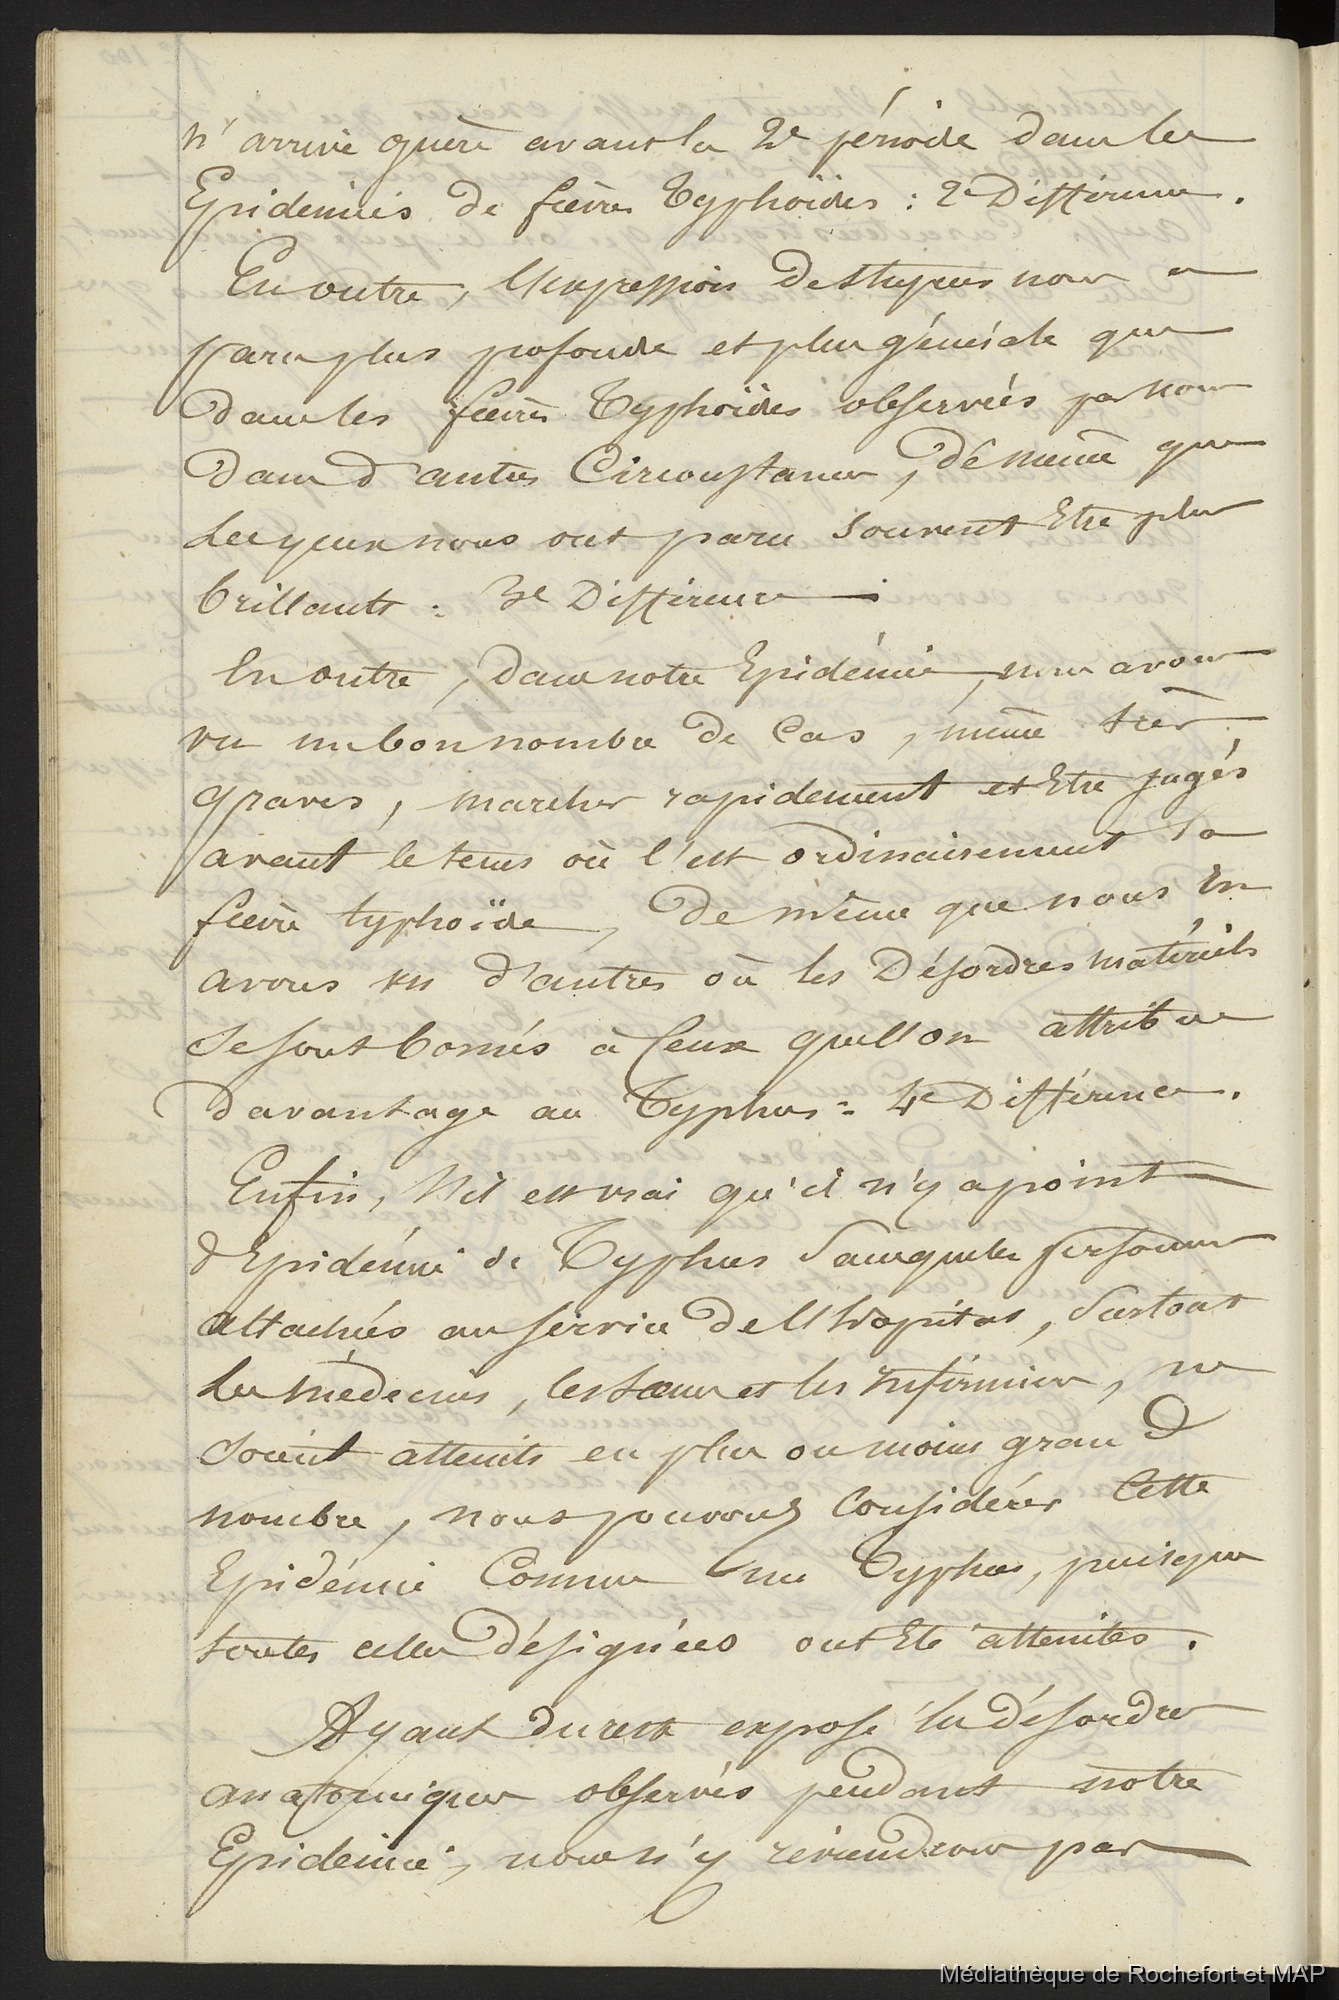 n'arrive guère avant la 2e période dans les
Epidémies de fièvres Typhoïdes : 2e Différence.
En outre, l'expression de stupeur nous a
paru plus profonde et plus générale que
dans les fièvres Typhoïdes observées par nous
dans d'autres Circonstances, de même que
les yeux nous ont paru souvent Etre plus
brillants : 3e Différence.
En outre, dans notre Epidémie, nous avons
vu un bon nombre de Cas, même très
graves, marcher rapidement et Etre jugés
avant le tems où l'est ordinairement la
fièvre typhoïde, de même que nous en
avons vu d'autres où les Désordres matériels
se sont bornés à Ceux que l'on attribue
davantage au Typhus = 4e Différence.
Enfin, s'il est vrai qu'il n'y a point
d'Epidémie de Typhus sans que les personnes
attachées au service de l'hôpital, surtout
les médecins, les sœurs et les infirmiers, ne
soient atteints en plus ou moins grand
nombre, nous pouvons Considérer Cette
Epidémie Comme un Typhus, puisque
toutes celles désignées ont Eté atteintes.
Ayant du reste exposé les désordres
anatomiques observés pendant notre
Epidémie, nous n'y reviendrons pas
Médiathèque de Rochefort et MAP